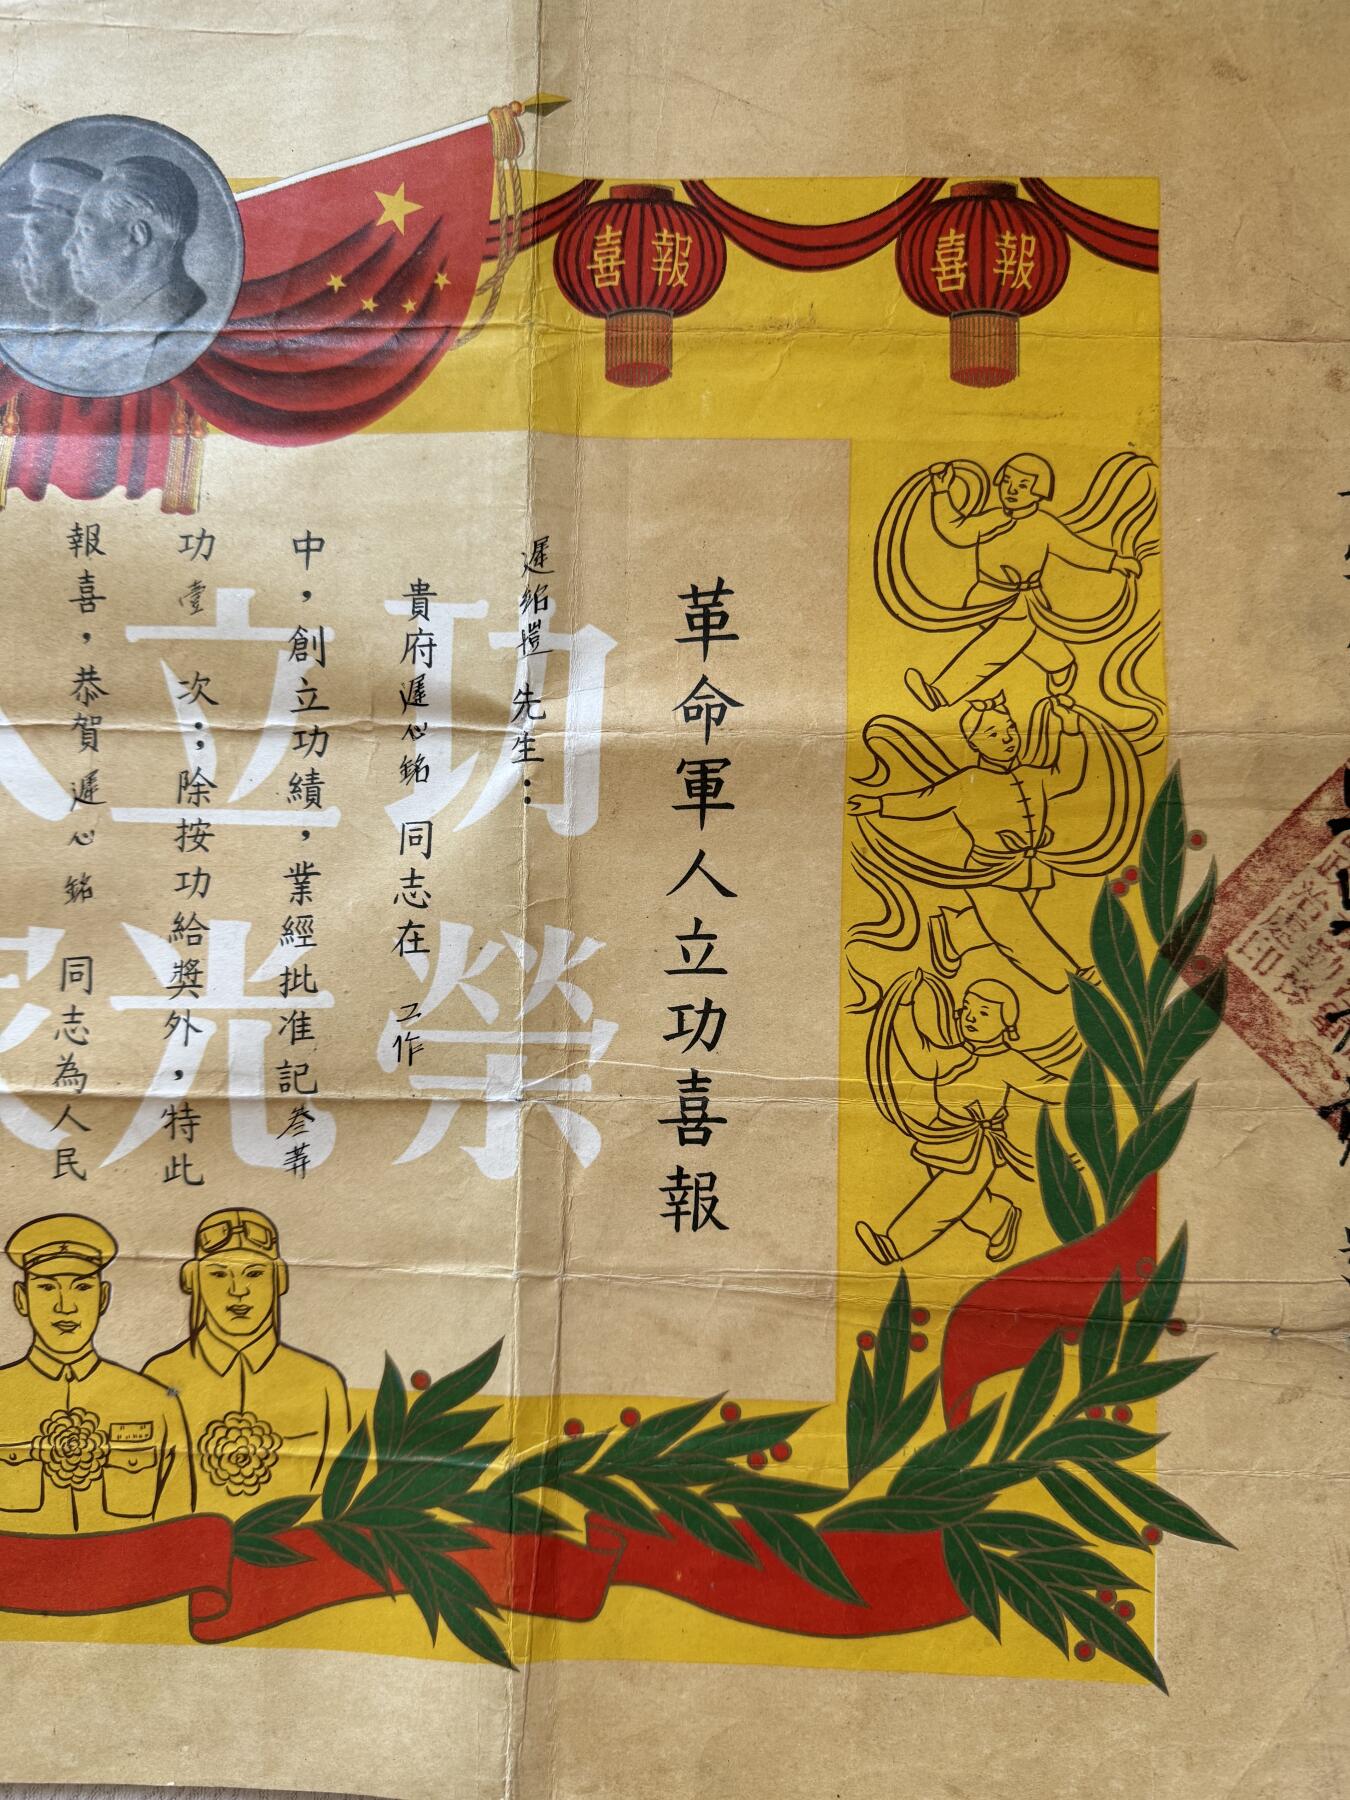 喜報
喜報
革命軍人立功喜報
遲紹塏先生：
貴府遲心銘 同志在 工作
中，創立功績，業經批准記叁等
功壹 次；除按功給獎外，特此
報喜，恭賀遲心銘 同志為人民
功立人
榮光